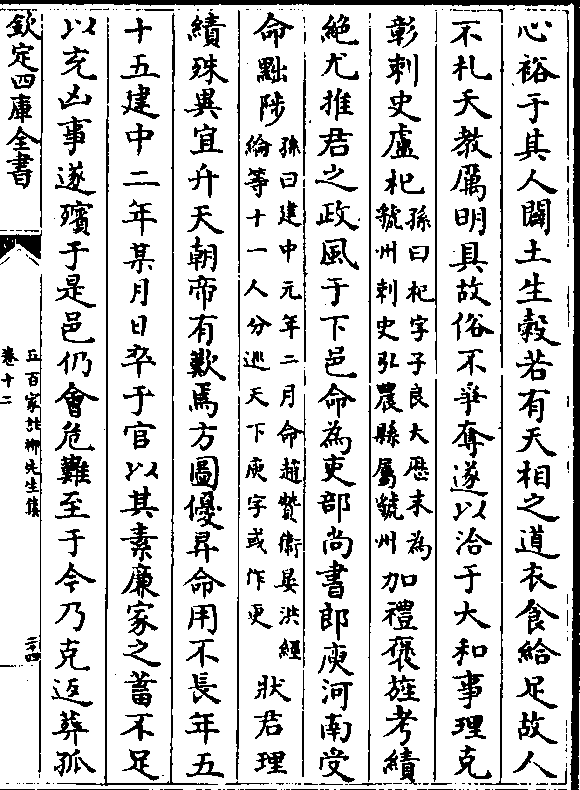 心裕于其人闢土生糓若有天相之道衣食給足故人
不札夭教厲明具故俗不爭奪遂以洽于大和事理克
彰刺史盧杞孫曰杞字子良大厯末為
虢州刺史弘農縣屬虢州加禮褒旌考績
絶尤推君之政風于下邑命為吏部尚書郎庾河南受
命黜陟孫曰建中元年二月命趙贊衛晏洪經
綸等十一人分巡天下庾字或作更狀君理
績殊異宜升天朝帝有歎焉方圖優昇命用不長年五
十五建中二年某月日卒于官以其素廉家之蓄不足
以充凶事遂殯于是邑仍會危難至于今乃克返葬孤
欽定四庫全書
五百家註柳先生集
卷十二
二十四